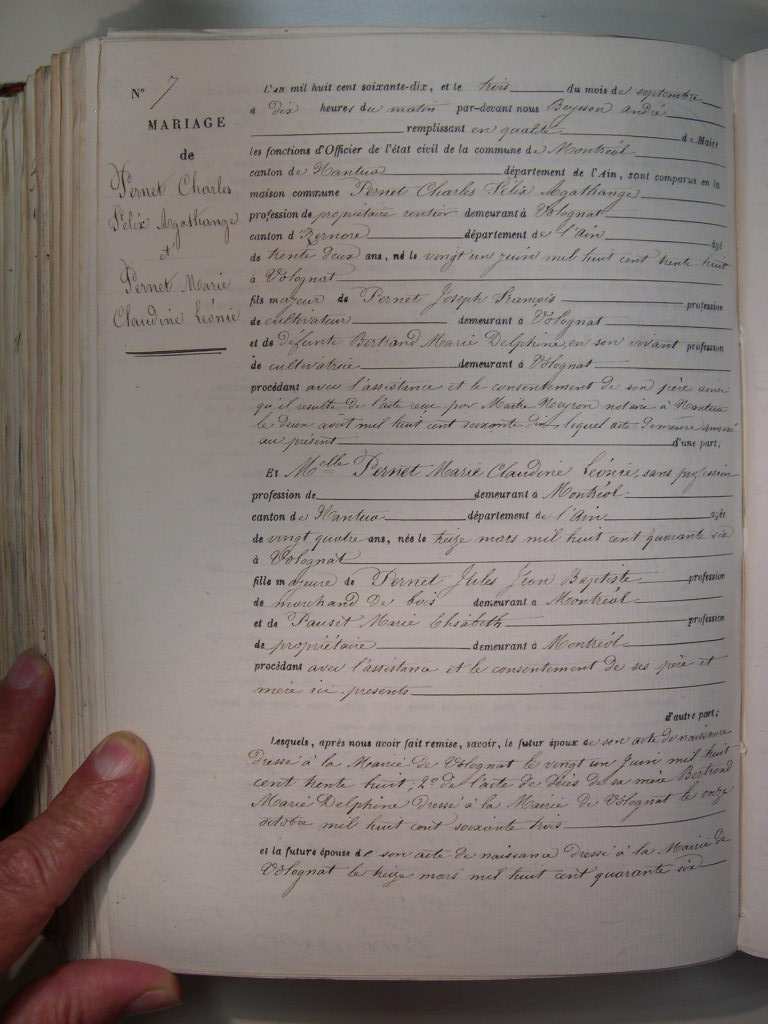 N° 7
MARIAGE
de
Pernet Charles
Félix Agathange
et
Pernet Marie
Claudine Léonie
L'an mil huit cent soixante-dix, et le trois du mois de septembre
à dix heures du matin par-devant nous Beysson andré
remplissant en qualité de Maire
les fonctions d'Officier de l'état civil de la commune de Montréal
canton de Nantua département de l'Ain, sont comparus en la
maison commune Pernet Charles Félix Agathange
profession de propriétaire rentier demeurant à Volognat
canton d'Izernore département de l'Ain âgé
de trente deux ans, né le vingt un juin mil huit cent trente huit
à Volognat
fils majeur de Pernet Joseph François profession
de cultivateur demeurant à Volognat
et de défunte Bertrand Marie Delphine, en son vivant profession
de cultivatrice demeurant à Volognat
procédant avec l'assistance et le consentement de son père ainsi
qu'il resulte de l'acte reçu par Maitre notaire à Nantua
le deux août mil huit cent soixante dix lequel acte demeure annexé
au présent d'une part,
Et Melle Pernet Marie Claudine Léonie, sans profession
profession de demeurant à Montréal
canton de Nantua département de l'Ain âgée
de vingt quatre ans, née le treize mars mil huit cent quarante six
à Volognat
fille majeure de Pernet Jules Jean Baptiste profession
de marchand de bois demeurant à Montréal
et de Pauset Marie Elisabeth profession
de propriétaire demeurant à Montréal
procédant avec l'assistance et le consentement de ses père et
mère ici presents
d'autre part;
Lesquels, après nous avoir fait remise, savoir, le futur époux de son acte de naissance
dressé à la Mairie de Volognat le vingt un juin mil huit
cent trente huit, 2° de l'acte de décès de sa mère Bertrand
Marie Delphine dressé à la Mairie de Volognat le onze
octobre mil huit cent soixante trois
et la future épouse de son acte de naissance dressé à la Mairie de
Volognat le treize mars mil huit cent quarante six